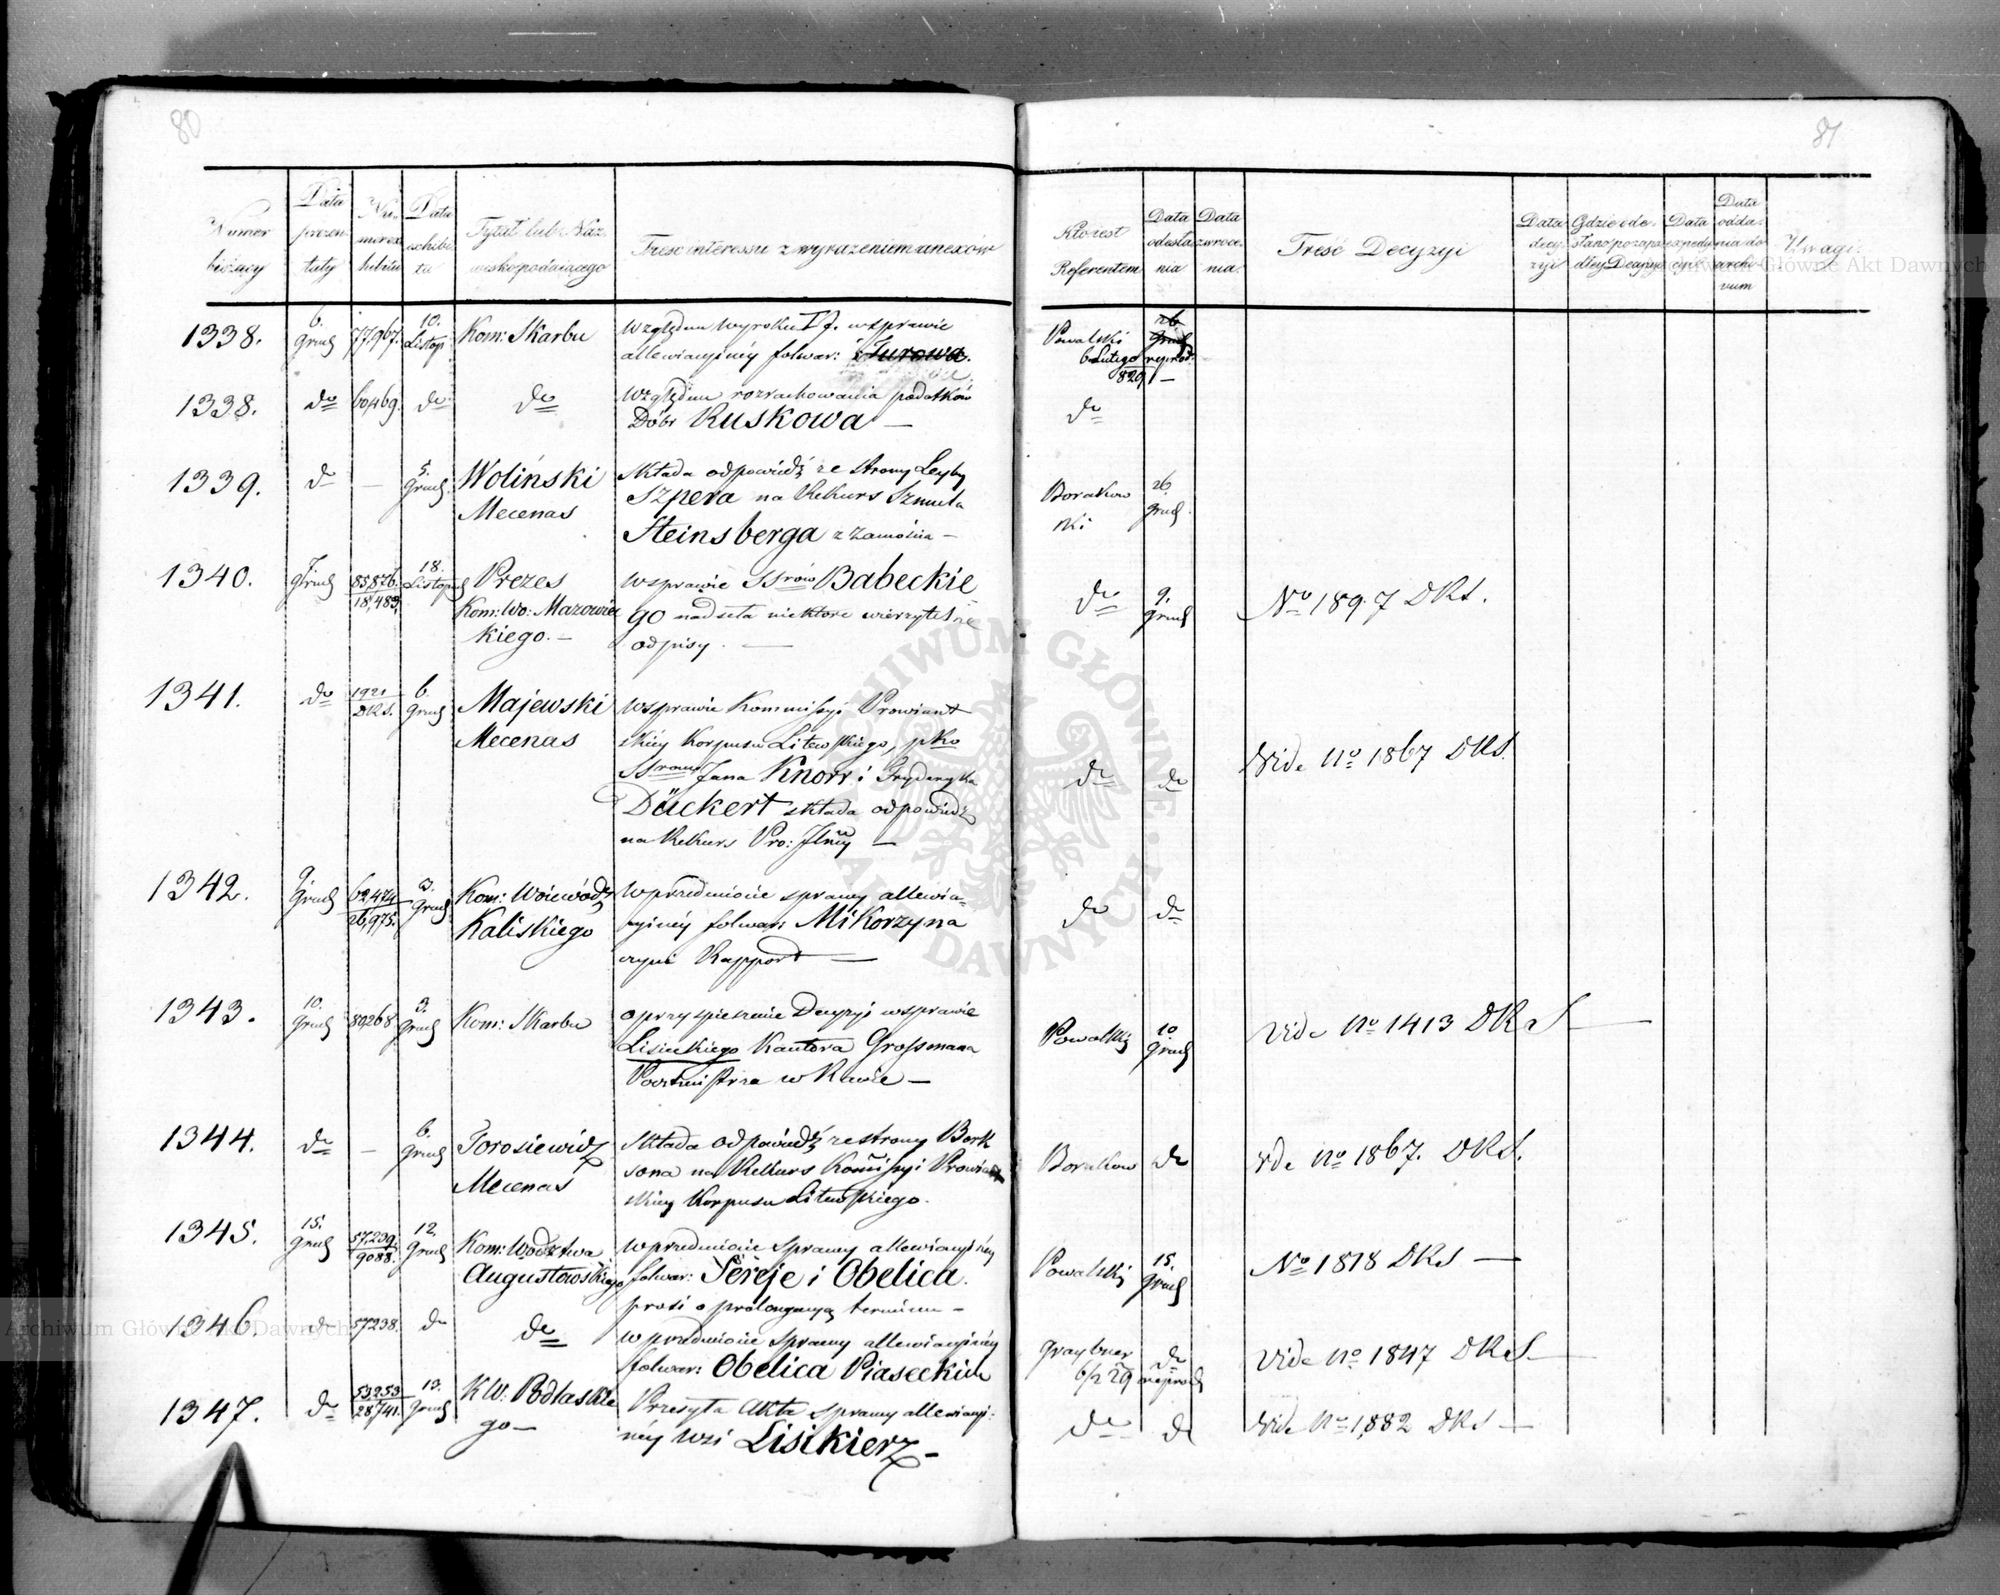 80
Numer bieżący
Data prezentaty
Numer exhibitu
Data exhibitu
Tytuł lub Nazwisko podaiącego
Treść interessu z wyrażeniem anexów
1338. 6. Grud 77,967. 10. Listop. Kom: Skarbu Względem wyroku I J. w sprawie
allewiacyinéy folwar:
1338. do 60,469. do do Względem rozrachowania podatków
Dóbr Ruskowa —
1339. do — 5. Grud. Woliński Składa odpowiedź ze strony Leyby
Mecenas Szpera na Rekurs Szmula
Steinsberga z Zamościa —
1340. 7. Grud 85,876. 18,483. 18. Listopad Prezes w sprawie SSrów Babeckie
Kom: Wo: Mazowiec go nadseła niektóre wierzytelne
kiego. — odpisy. —
1341. do 1921 DKS. 6. Grud Majewski w sprawie Kommissyi Prowiant
Mecenas skiéy Korpusu Litewskiego, pko
SSrom Jana Knorr i Fryderyka
Däckert składa odpowiedź
na Rekurs Pro: Jlnéy —
1342. 9. Grud 62,474 26,975. 3. Grud. Kom: Woiewódz w przedmiocie sprawy allewia-
Kaliskiego cyinéy folwar: Mikorzyna
czyni Rapport —
1343. 10. Grud 80268 3. Grud Kom: Skarbu o przyspieszenie Decyzyi w sprawie
Lisieckiego Kantora Grossmana
Pocztmistrza w Rawie —
1344. do — 6. Grud Torosiewicz Składa odpowiedź ze strony Berk
Mecenas sona na Rekurs Kom̄issyi Prowiant
skiey Korpusu Litewskiego.
1345. 15. Grud 57,239. 9088. 12. Grud Kom: Wodztwa w przedmiocie Sprawy allewiacyinéy
Augustowskiego folwar: Sereje i Obelica.
prosi o prolongacyą terminu —
1346. do 57238. do do w przedmiocie sprawy allewiacyinéy
folwar: Obelica Piaseckich
1347. do 53253 28,741. 13. Grud K W. Podlaskie Przesyła Akta sprawy allewiacyi-
go — néy Wsi Lisikierz —
81
Kto iest Referentem
Data odesłania
Data zwrócenia
Treść Decyzyi
Data decyzyi
Gdzie odesłano pozopadłey Decyzyi
Data expedycyi
Data oddania do archivum
Uwagi
Powalski 26 Grud
6 Lutego 829
do
Borakowski 26 Grud.
do 9. Grud No 1897 DKS.
do do Vide No 1867 DKS.
do do
Powalski 10 Grud Vide No 1413 DKS —
Borakow do Vide No 1867. DKS.
Powalski 15. Grud No 1818 DKS —
Graybner do Vide No 1847 DKS. —
6/2 29
do do Vide No 1,882 DKS —
ARCHIWUM GŁÓWNE AKT DAWNYCH
Archiwum Główne Akt Dawnych
Archiwum Główne Akt Dawnych